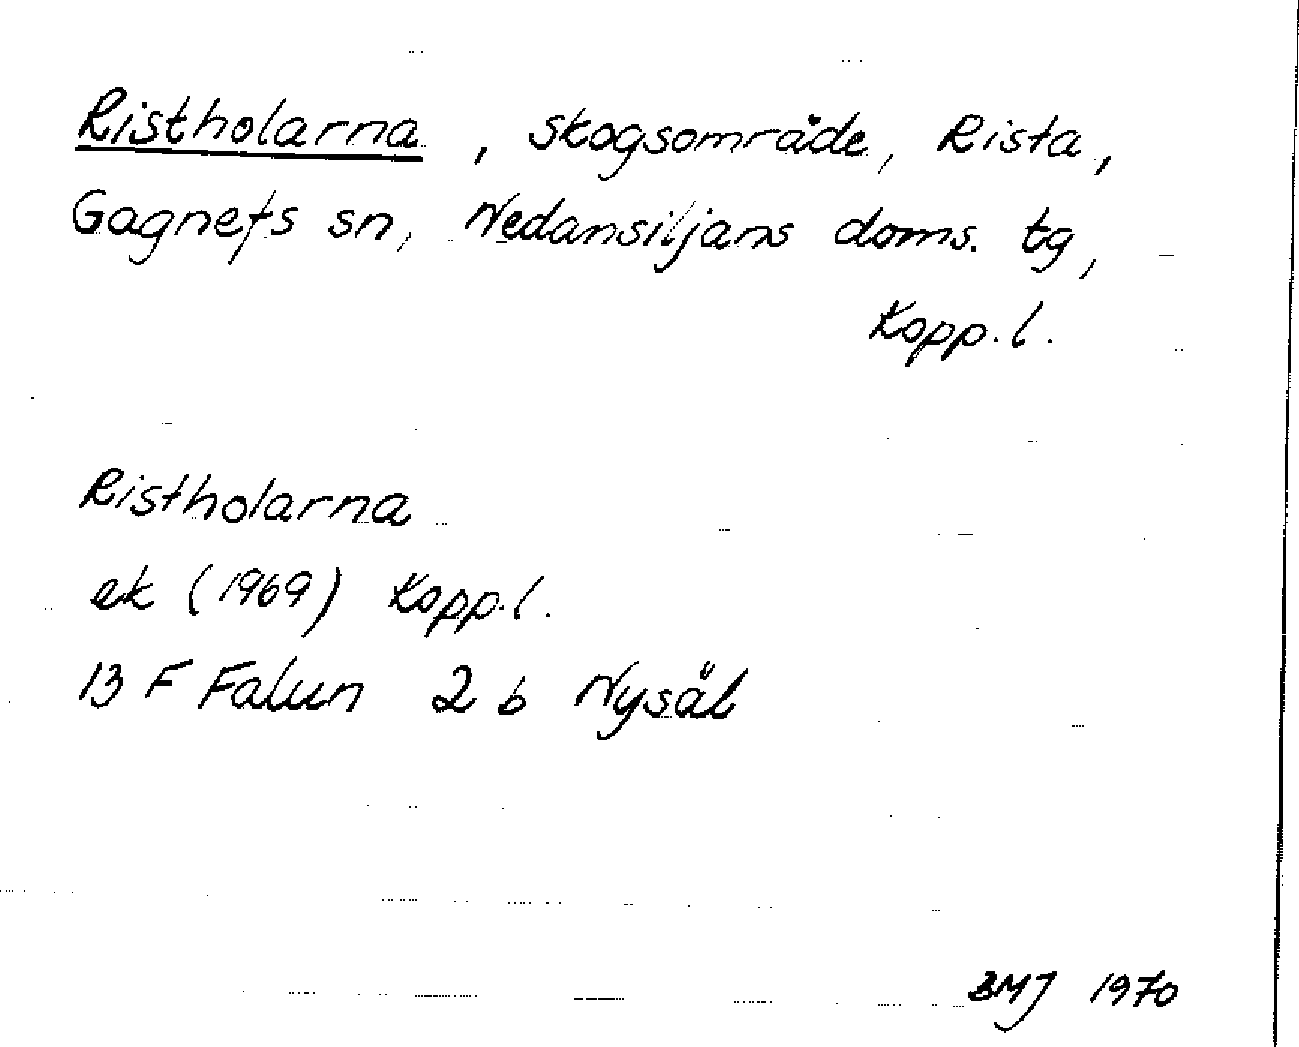 Ristholarna, skogsområde, Rista,
Gagnefs sn, Nedansiljans doms. tg,
Kopp.l.
Ristholarna
ek (1969) Kopp.l.
13 F Falun 2 b Nysäl
BMJ 1970